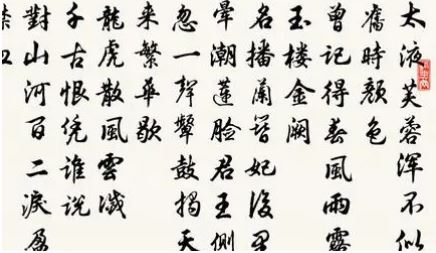 太液芙蓉浑不似
舊時顏色
曾記得春風雨露
玉楼金阙
名播蘭簪妃後里
暈潮蓮臉君王側
忽一聲鼙鼓揭天
来繁華歇
龍虎散風雲滅
千古恨凭誰說
對山河百二淚盈